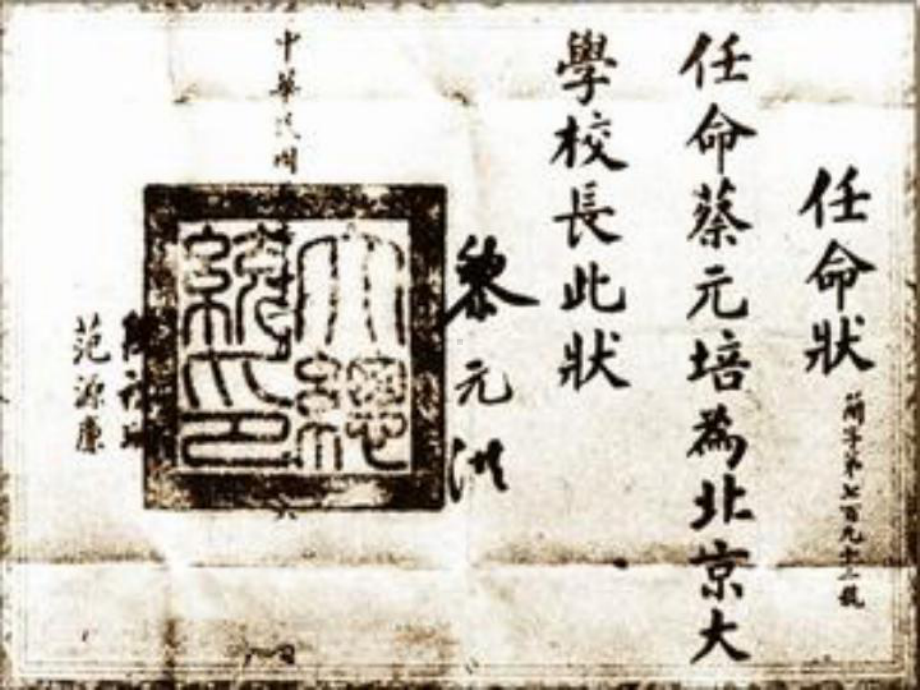 任命狀
簡字第七百九十二號
任命蔡元培為北京大
學校長此狀
黎元洪
大總統印
中華民國
范源廉